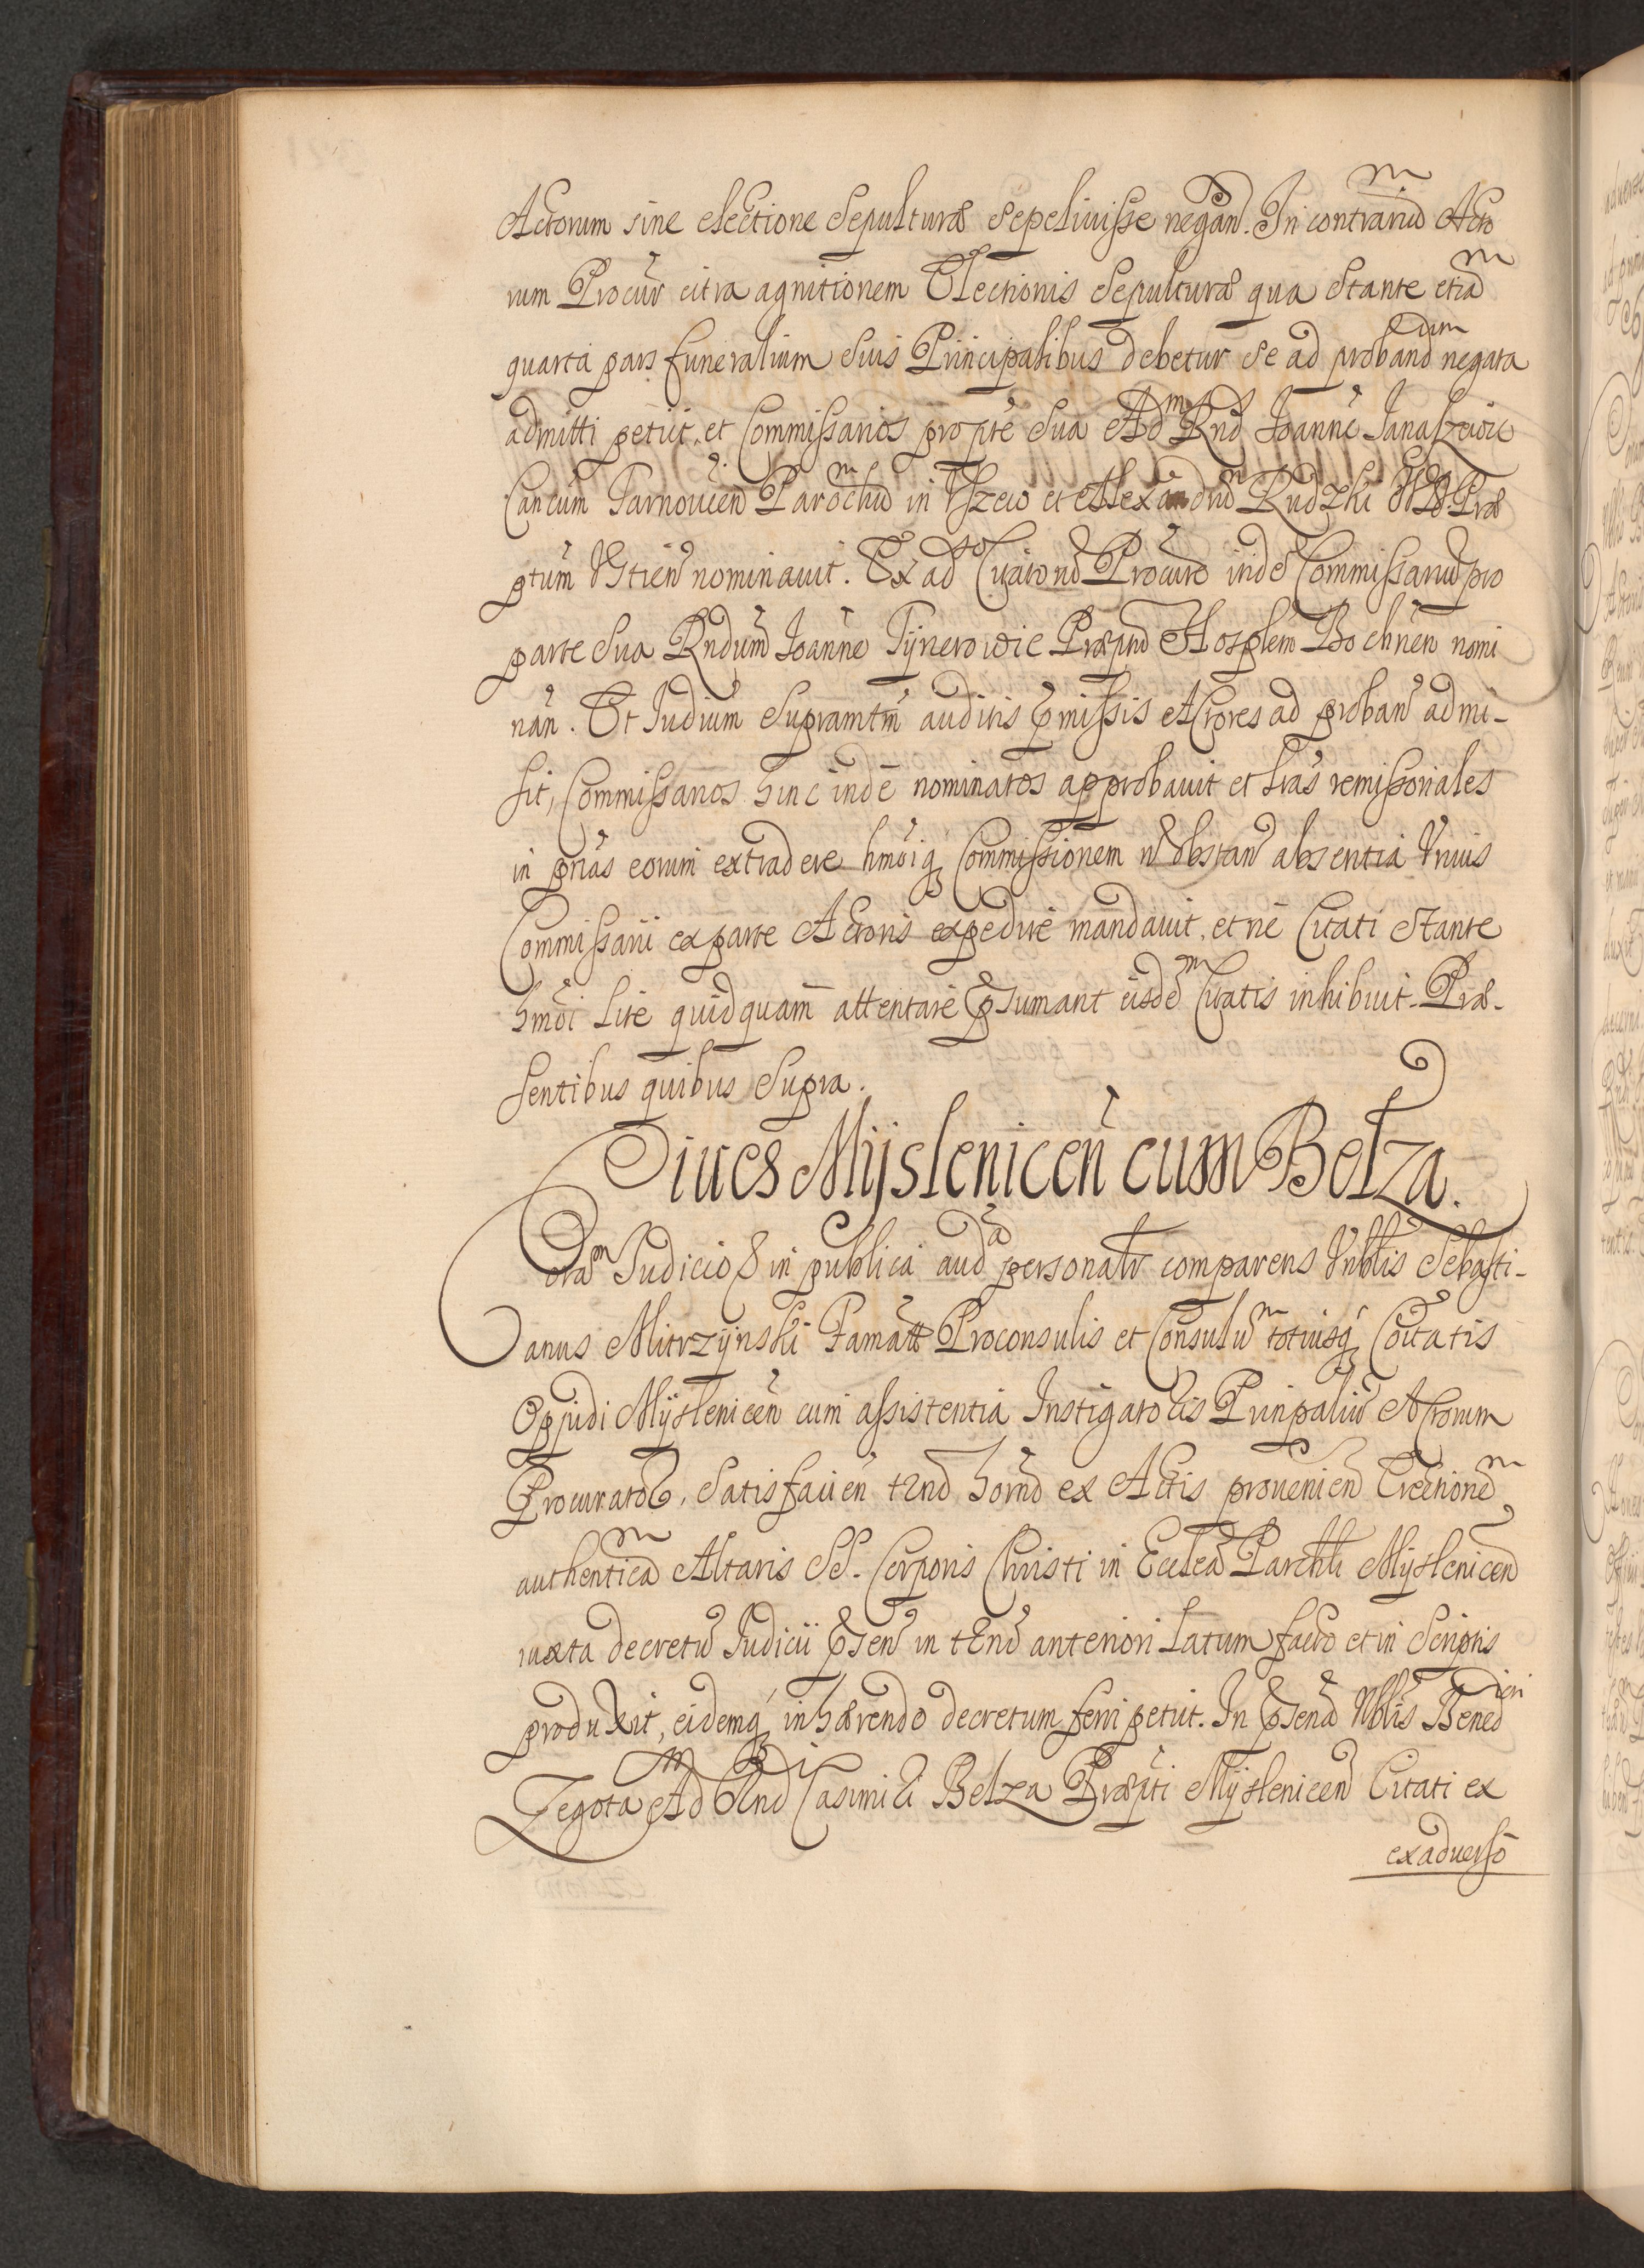 Actorum sine electione Sepulturæ Sepeliuisse negan̄. In contrariu͞m Acto
rum Procur̄ citra agnitionem Electionis Sepulturæ qua Stante etia͞m
quarta pars funeralium Suis Principalibus debetur Se ad proband͞um negata
admitti petijt, et Commissarios pro pt̄e Sua Ad͞m Rnd͞ Joann̄e Janaszewic
Can͞cum Tarnouien̄ Parochu͞m in Vszew et Alexandru͞m Rudzki Præ
ptum Vstien̄ nominauit. Ex ad͞so Citaton̄ Procur̄o inde Commissariu͞ pro
parte Sua Rndum̄ Joann̄e Tynerowic Præpn͞d Hosplem̄ Bochnen̄ nomi
nan̄. Et Judium̄ Supramt̄m̄ auditis p̄missis Actores ad proban̄ admi-
sit, Commissarios hinc inde nominatos approbauit et Lr̄as remissoriales
in pr̄ias eorum extradere hmōiq₃ Commissionem n̄ obstan̄ absentia Vnius
Commissarii ex parte Actoris expedire mandauit, et ne Citati Stante
hmōi Lite quidquam attentare p̄sumant eisde͞m Citatis inhibuit. Præ-
sentibus quibus Supra.
Ciues Myslenicen̄ cum Belza.
Cora͞m Judicio & in publica aud͞a personalr̄ comparens Nblis̄ Sebasti-
anus Mitrzynski Famat̄t Proconsulis et Consulu͞m totiusq₃ Coītatis
Oppidi Myslenicen̄ cum assistentia Instigatoris Prinpaliu͞ Actorum
Procurator, Satisfacien̄ tr̄no hor̄no ex Actis prouenien̄ Erectione͞m
authentica͞m Altaris SS. Corporis Christi in Eccle͞a Parchli Myslenicen̄
iuxta decretu͞ Judicii p̄sen̄ in tr̄no anteriori Latum facto et in Scriptis
produxit, eidemq₃ inhærendo decretum ferri petijt. In p̄sen͞a Nblis̄ Bened͞icti
Zegota Ad͞m R͞ndi Casimiri Belza Præpti Myslenicen̄ Citati ex
exaduerso